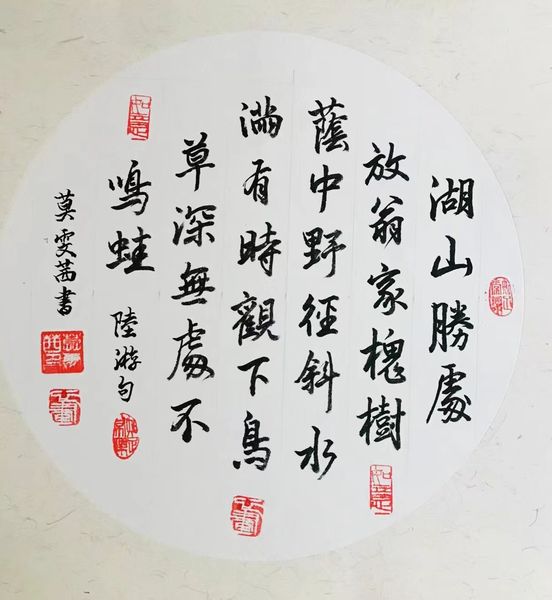 湖山勝處
放翁家槐樹
如意
蔭中野徑斜水
滿有時觀下鳥
草深無處不
如意
鳴蛙
陸游句
莫雯茜書